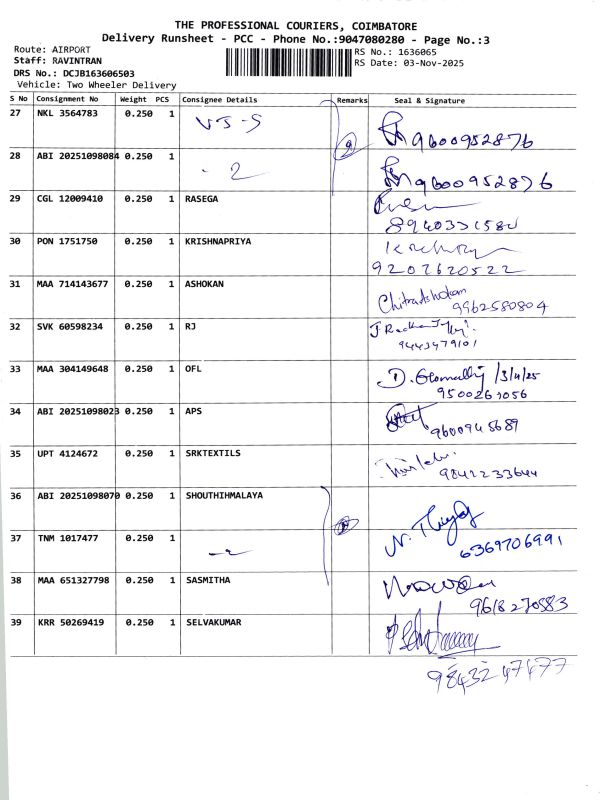 THE PROFESSIONAL COURIERS, COIMBATORE
Delivery Runsheet - PCC - Phone No.:9047080280 - Page No.:3
Route: AIRPORT
Staff: RAVINTRAN
DRS No.: DCJB163606503
Vehicle: Two Wheeler Delivery
RS No.: 1636065
RS Date: 03-Nov-2025
S No Consignment No Weight PCS Consignee Details Remarks Seal & Signature
27 NKL 3564783 0.250 1 VJ-S 9600952876
28 ABI 20251098084 0.250 1 - 2 9600952876
29 CGL 12009410 0.250 1 RASEGA
30 PON 1751750 0.250 1 KRISHNAPRIYA
9207620522
31 MAA 714143677 0.250 1 ASHOKAN Chitra Ashokan
9962580804
32 SVK 60598234 0.250 1 RJ
9443479101
33 MAA 304149648 0.250 1 OFL D. Gomathy /3/11/25
9500261056
34 ABI 20251098023 0.250 1 APS
9600945689
35 UPT 4124672 0.250 1 SRKTEXTILS
9842233644
36 ABI 20251098070 0.250 1 SHOUTHIHMALAYA
37 TNM 1017477 0.250 1
6369706991
38 MAA 651327798 0.250 1 SASMITHA
9618270583
39 KRR 50269419 0.250 1 SELVAKUMAR
9843247477